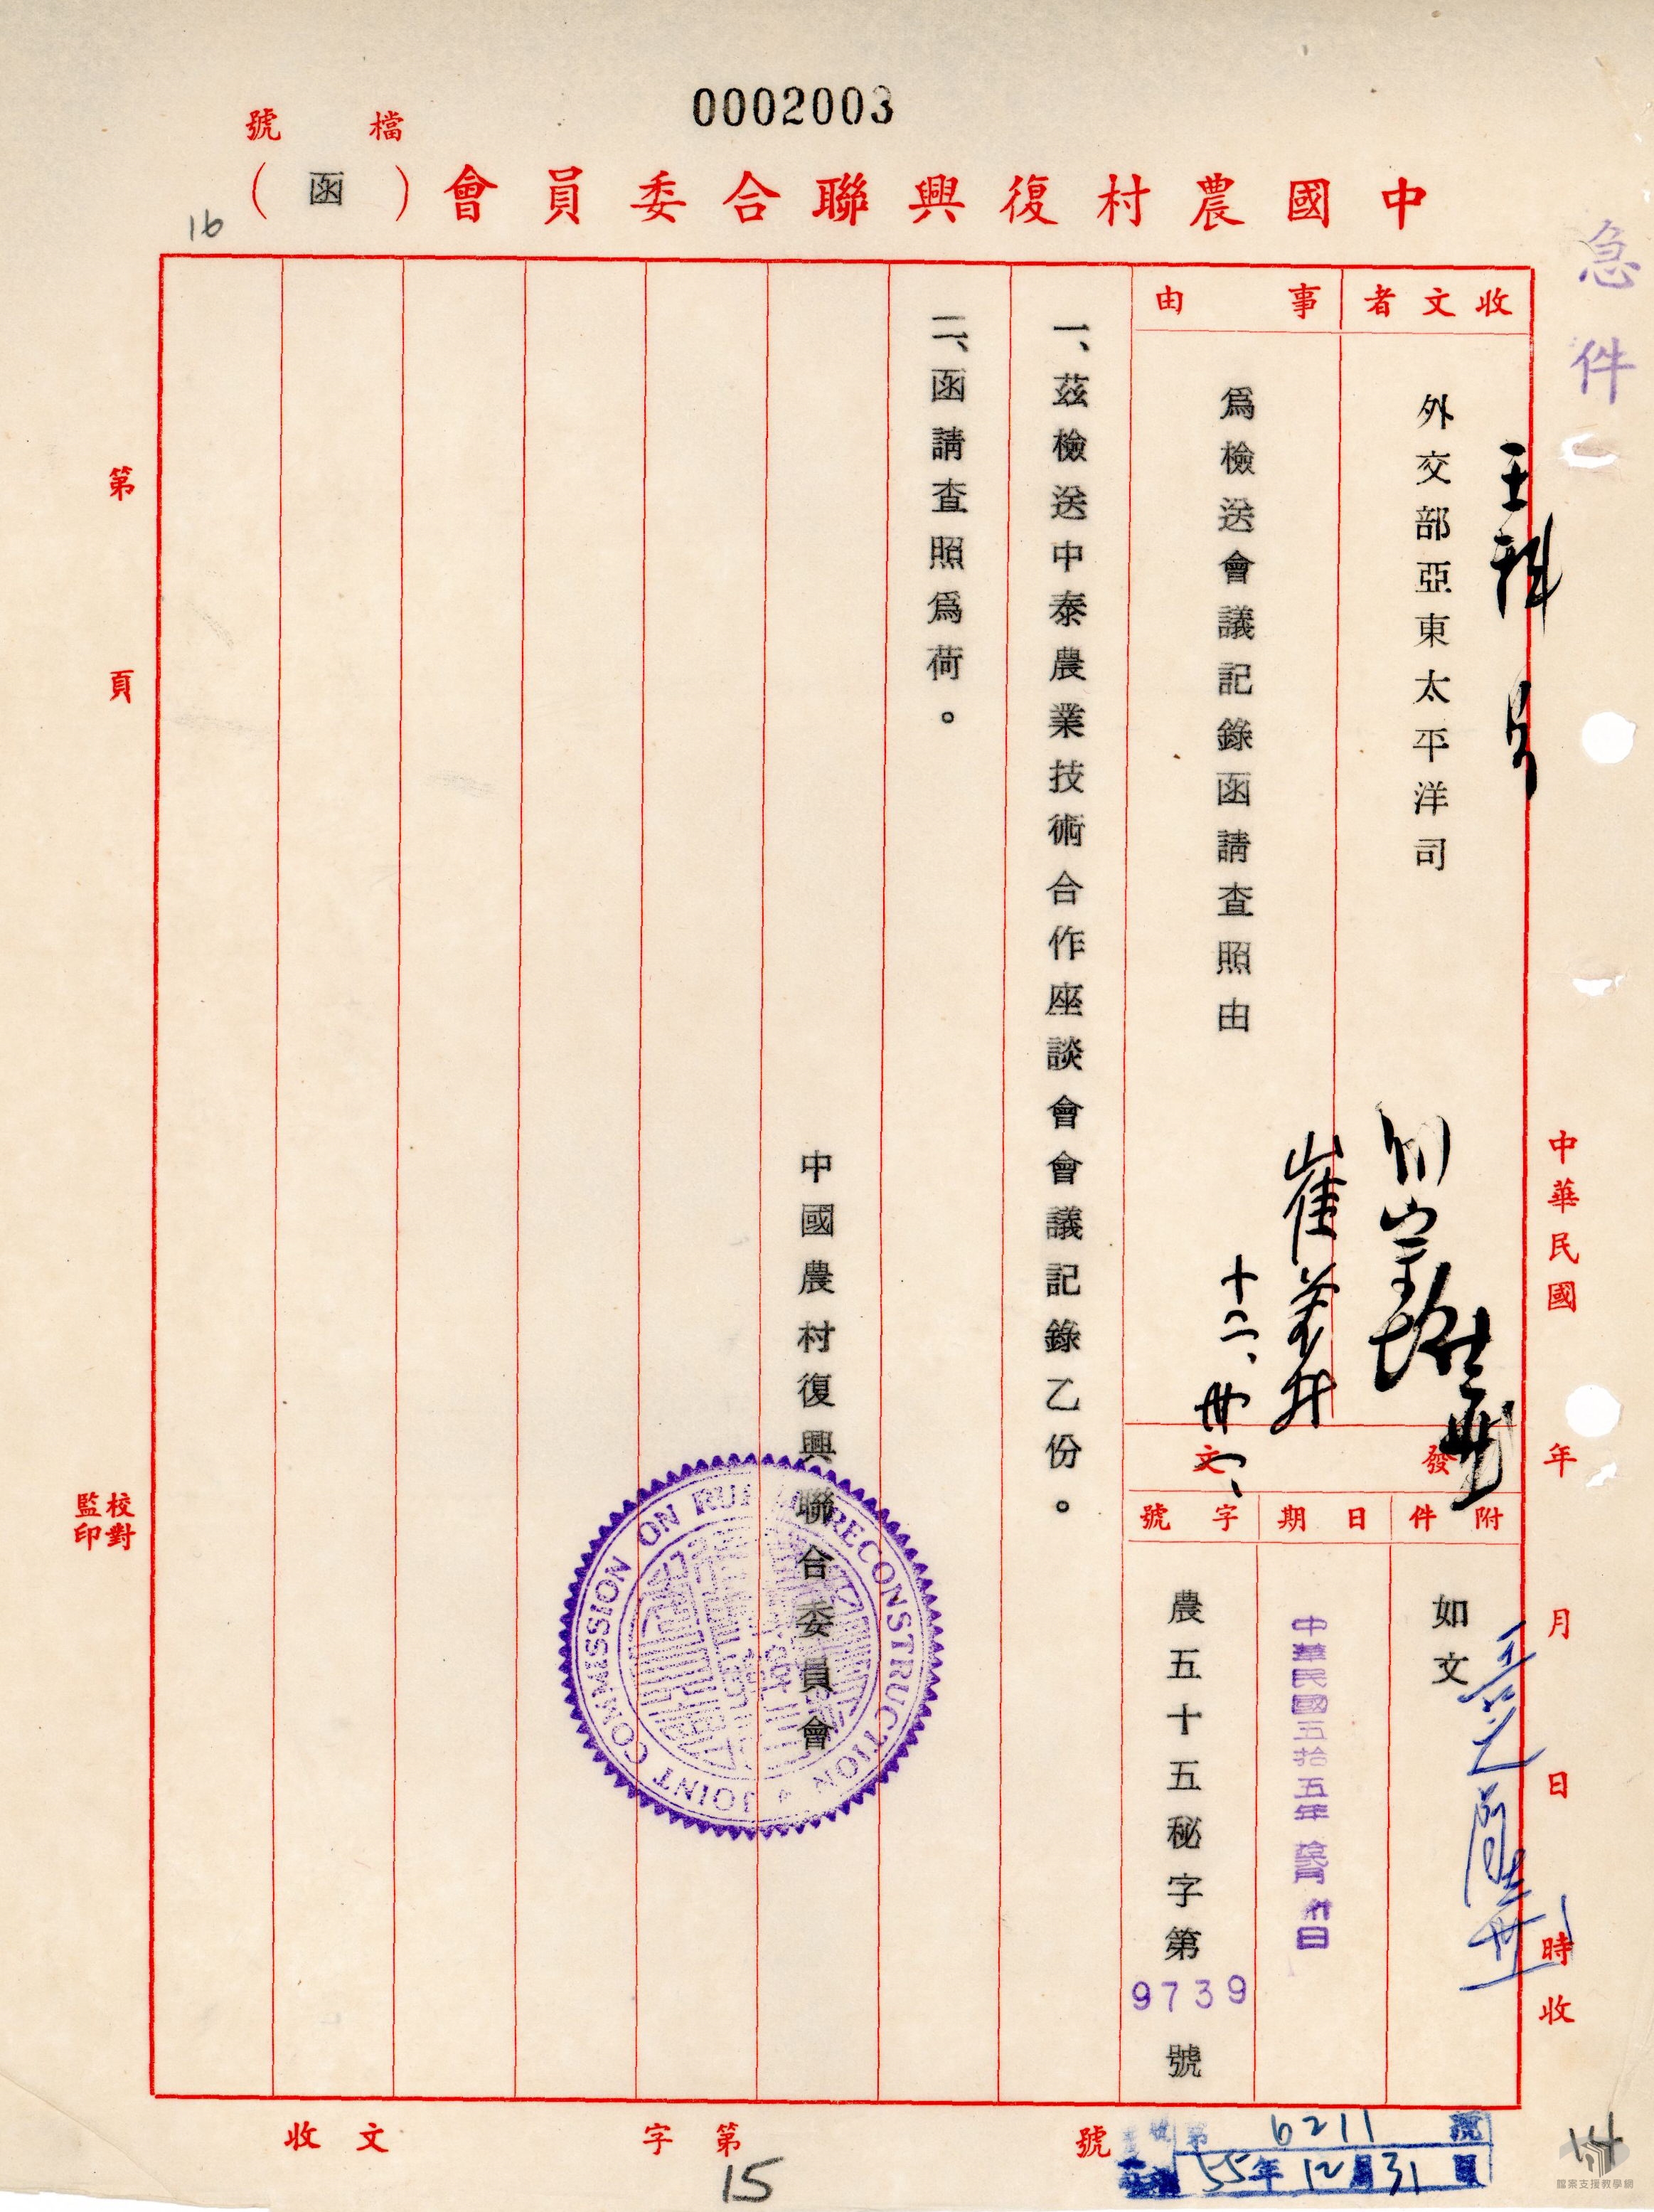 0002003
檔號
中國農村復興聯合委員會(函)
16
急件
收文者
外交部亞東太平洋司
事由
為檢送會議記錄函請查照由
崔
十二、卅一、
發文
附件
如文
日期
中華民國五拾五年
字號
農五十五秘字第9739號
一、茲檢送中泰農業技術合作座談會會議記錄乙份。
二、函請查照為荷。
中國農村復興聯合委員會
JOINT COMMISSION ON RURAL RECONSTRUCTION
中華民國 年 月 日 時收
第 頁
校對
監印
收文 字第 號
6211 號
55年12月31日
15
14
檔案支援教學網